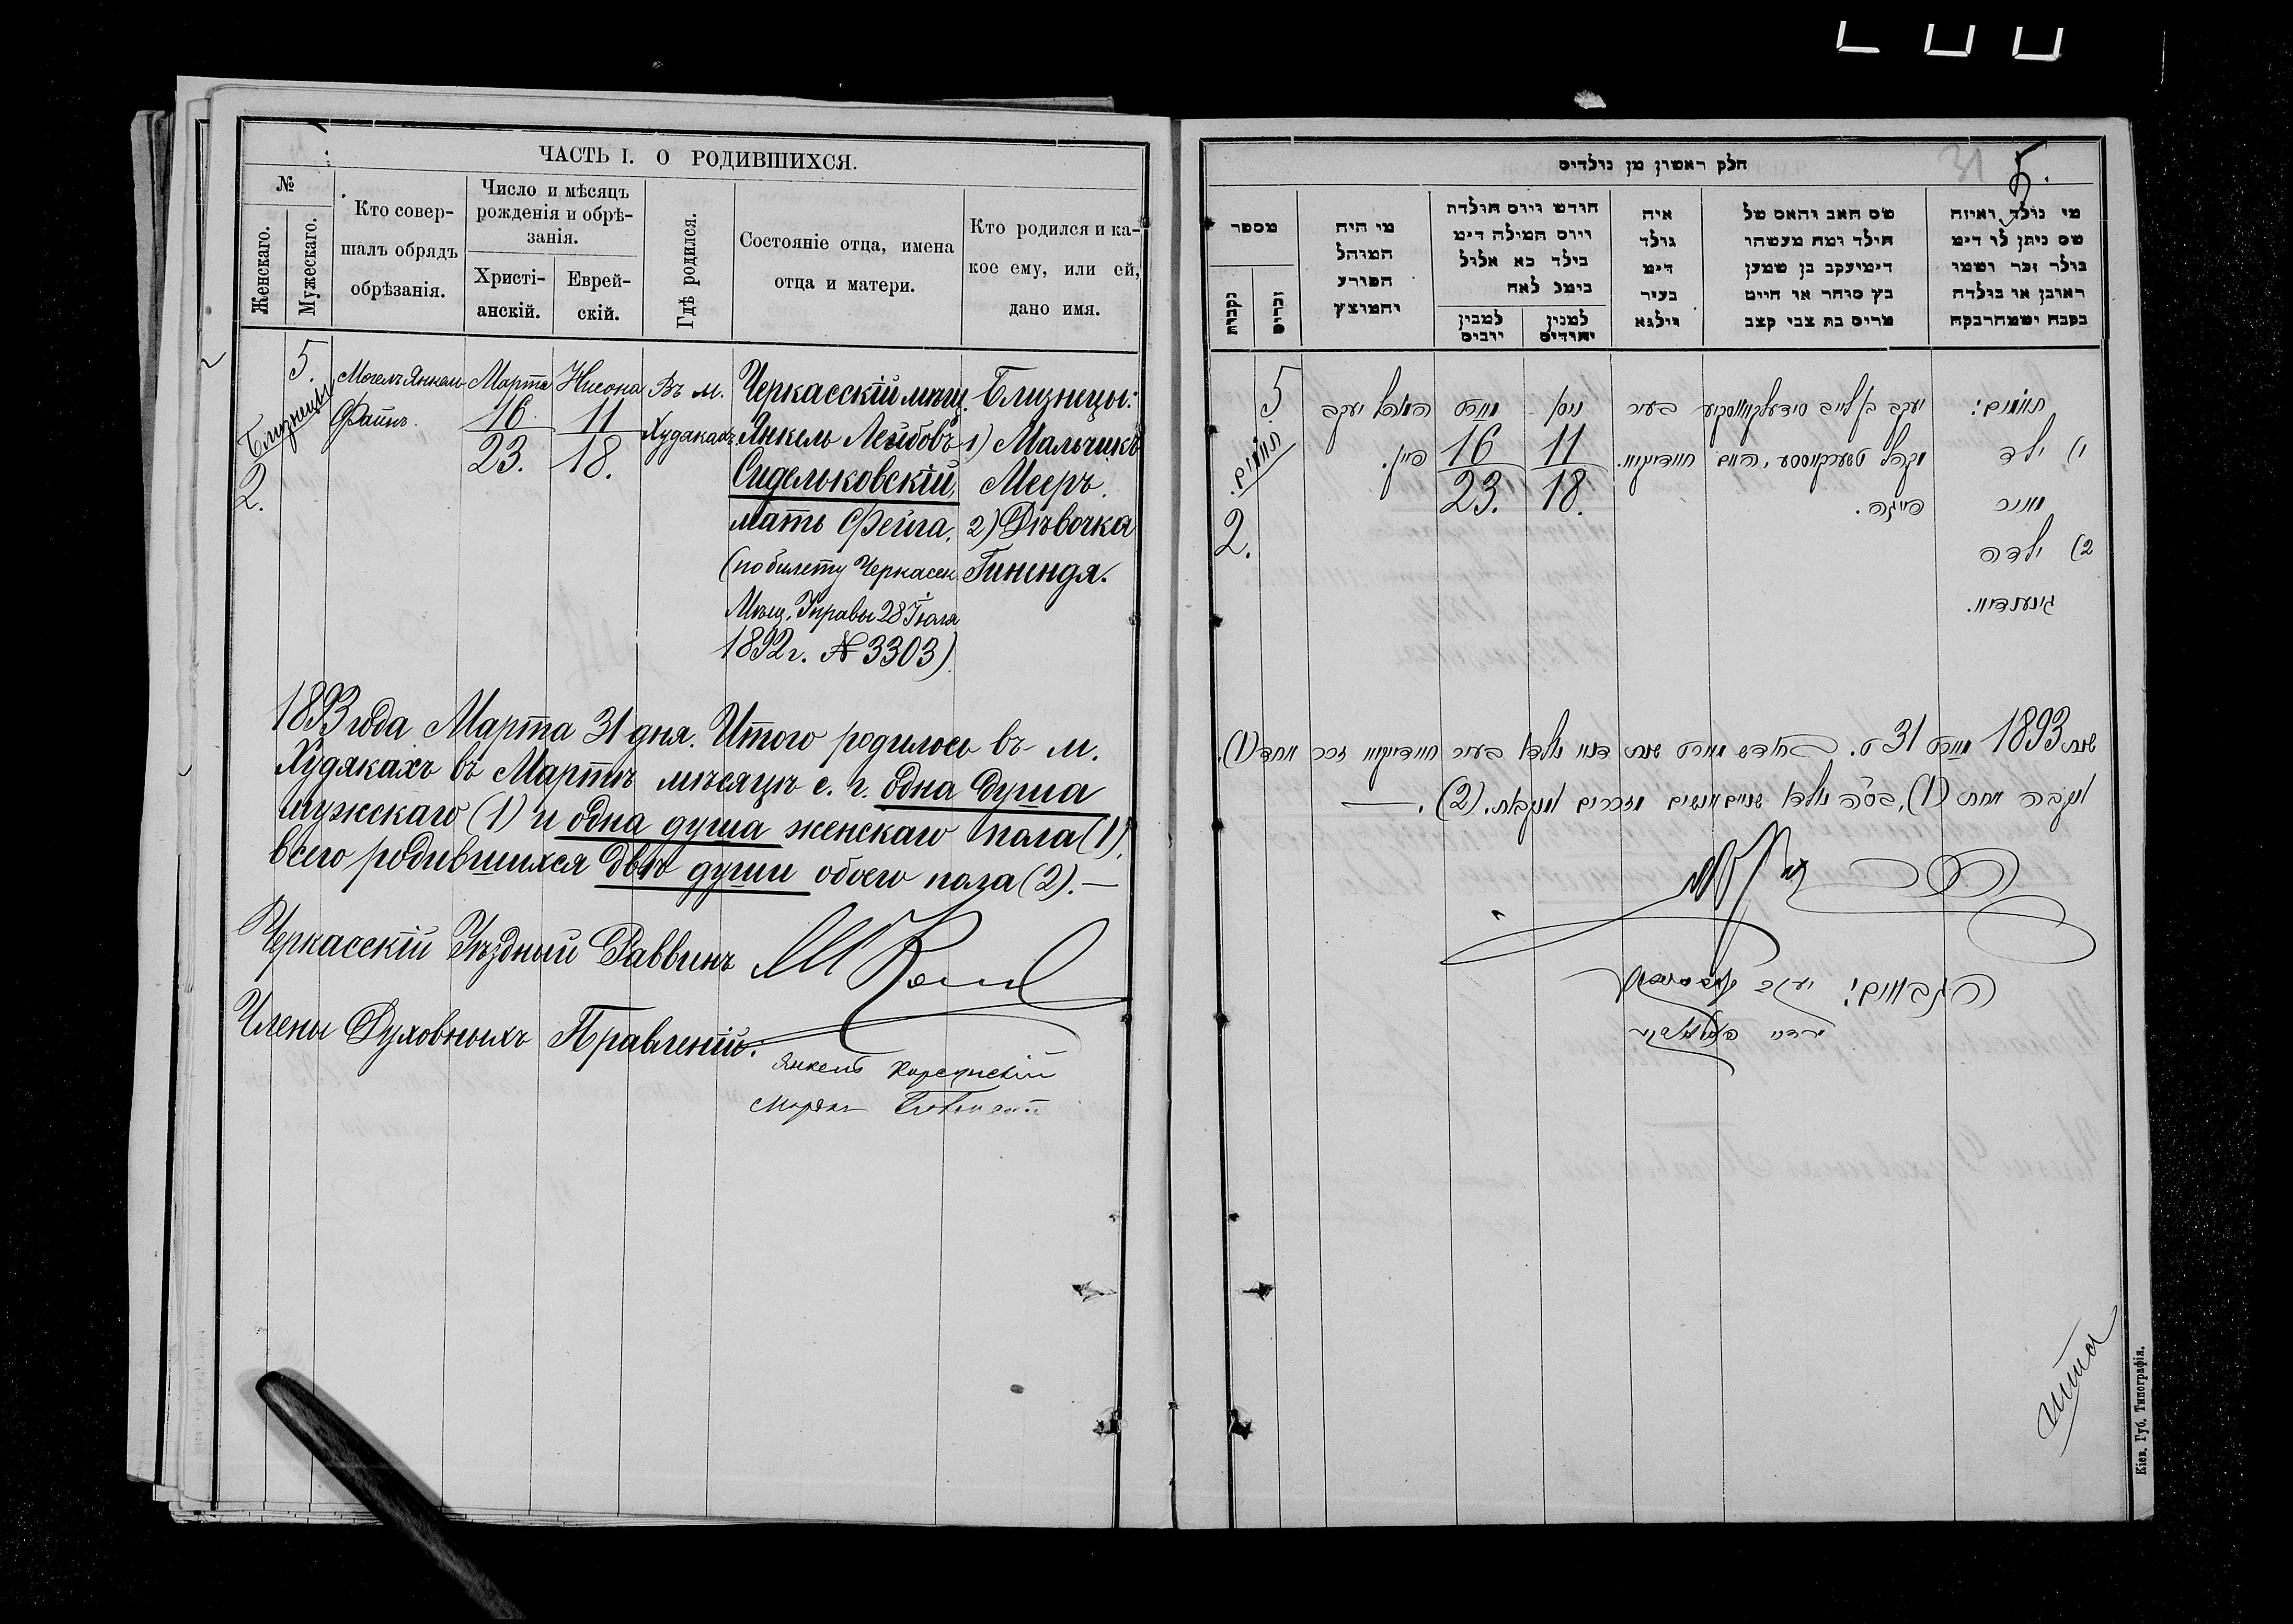 ЧАСТЬ I. О РОДИВШИХСЯ.
№
Женскаго.
Мужескаго.
Кто совер-
шалъ обрядъ
обрѣзанія.
Число и мѣсяцъ
рожденія и обрѣ-
занія.
Христі-
анскій.
Еврей-
скій.
Гдѣ родился.
Состояніе отца, имена
отца и матери.
Кто родился и ка-
кое ему, или ей,
дано имя.
Близнецы
2.
5.
Могель Янкель
Файнъ.
Марта
16
23.
Нисона
11
18.
Въ м.
Худякахъ
Черкасскій мѣщ.
Янкель Лейбовъ
Сидельковскій,
мать Фейга,
(по билету Черкасск.
Мѣщ. Управы 28 Іюля
1892 г. № 3303)
Близнецы:
1) Мальчикъ
Мееръ.
2) Дѣвочка
Гинендя.
1893 года Марта 31 дня. Итого родилось въ м.
Худякахъ въ Мартѣ мѣсяцѣ с. г. одна душа
мужскаго (1) и одна душа женскаго пола (1),
всего родившихся двѣ души обоего пола (2). —
Черкасскій Уѣздный Раввинъ
Члены Духовныхъ Правленій:
Янкель Корсунскій
חלק ראשון מן נולדים
31
5.
מספר
נקבות
זכרים
מי היה
המוהל
הפורע
והמוצץ
חודש ויום הולדת
ויום המילה דימ
בילד כא אלול
בימל לאח
למנין
יהודים
איה
נולד
דימ
בעיר
ווילנא
שם האב והאם של
הילד ומה מעשהו
דימיעקב בן שמען
בץ סוחר או חייט
מרים בת צבי קצב
מי נולד ואיזה
שם ניתן לו דימ
בולד זכר ושמו
ראובן או בולדה
5
תאומים.
2.
המוהל יעקב
פיין.
מארט
16
23.
ניסן
11
18.
בעיר
חודיקיא.
יעקב בן לייב סידעלקאווסקיע
פייגה.
תאומים:
1) ילד
מאיר
2) ילדה
גינענדיא.
שנת 1893 מארט 31
Кіев. Губ. Типографія.